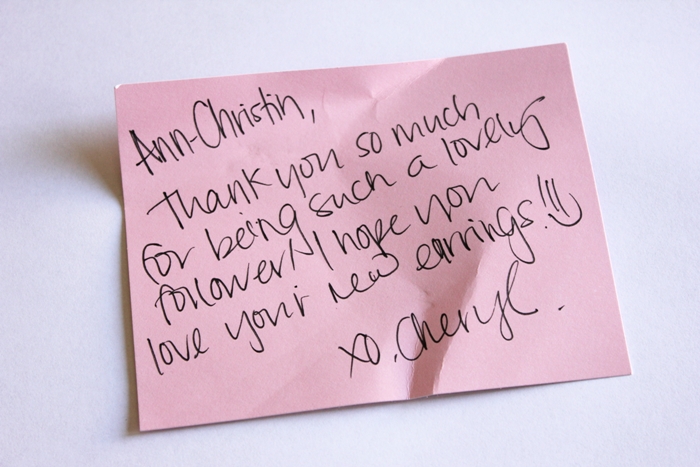 Ann-Christin,
Thank you so much
for being such a lovely
follower! I hope you
love your new earrings!!!
xo. Cheryl.